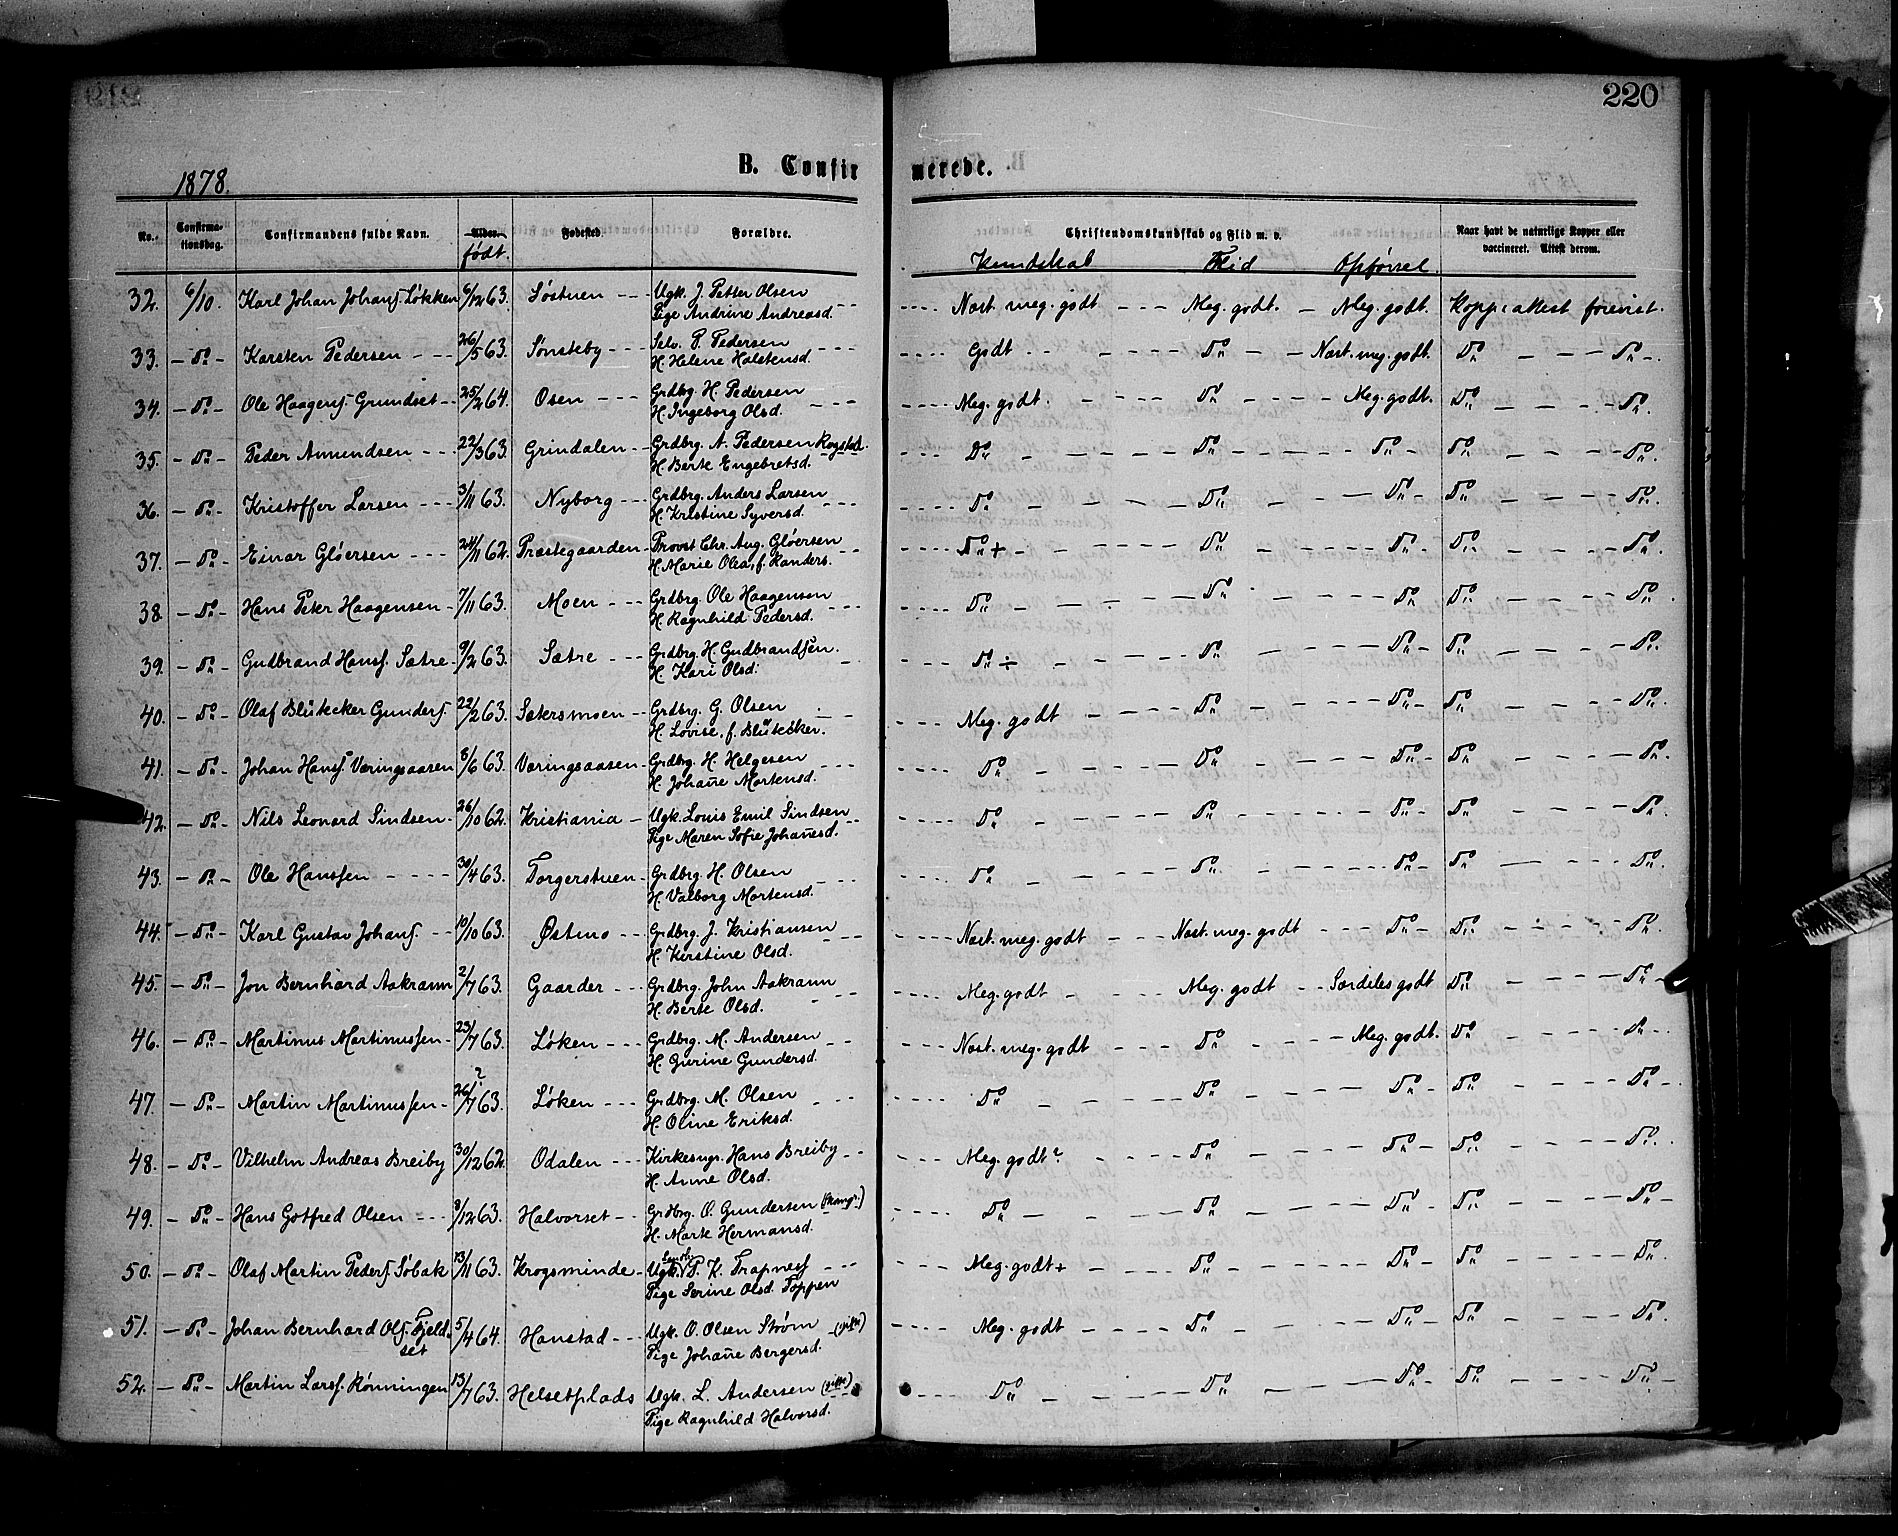 220
1878.
B. Confirmerede.
No. Confirmationsdag. Confirmandens fulde Navn. Alder. født. Fødested. Forældre. Christendomskundskab og Flid m. v. Kundskab Flid Opførsel. Naar havt de naturlige Kopper eller vaccineret. Attest derom.
32. 6/10. Karl Johan Johans. Løkken 6/12 63. Løstuen --- Ugk. J. Petter Olsen
Pige Andrine Andreasd. -- ---- Næst. meg. godt --- Meg. godt. - Meg. godt. Koppeattest forevist.
33. - Do - Karsten Pedersen --- 26/5 63. Sønsteby --- Selv. P. Pedersen
H. Helene Halstensd. --- ---- Godt -- - - Do - - Næst. meg. godt. Do - - - Do -.
34. - Do - Ole Haagens. Grundset -- 25/2 64. Osen --- Grdbrg. H. Pedersen
H. Ingeborg Olsd. --- ---- Meg. godt. - --- Do - - Meg. godt. Do - - - Do.
35. - Do - Peder Amundsen --- 22/3 63. Grindalen -- Grdbrg. A. Pedersen Rogstad.
H. Berte Engebretsd. ---- Do - --- Do - - - Do - Do - - - Do.
36. - Do - Kristoffer Larsen --- 3/11 63. Nyborg --- Grdbrg. Anders Larsen
H. Kristine Syversd. --- ---- Do - - - Do - - - Do - Do - - - Do.
37. - Do - Einar Gløersen --- 24/11 62. Præstegaarden - Provst Chr. Aug. Gløersen
H. Marie Olea, f. Randers. -- ---- Do + - --- Do - - - Do - Do - - - Do.
38. - Do - Hans Peter Haagensen - 7/11 63. Moen --- Grdbrg. Ole Haagensen
H. Ragnhild Pedersd. --- ---- Do - - - Do - - - Do Do - - - Do.
39. - Do - Gudbrand Hans. Sætre - 9/2 63. Sætre --- Grdbrg. H. Gudbrandsen.
H. Kari Olsd. - ---- Do ÷ - - Do - - - Do - Do - - - Do.
40. - Do - Olaf Blütecker Gunders. 22/2 63. Sætersmoen -- Grdbrg. G. Olsen
H. Lovise, f. Blütecker. --- ---- Meg. godt - --- Do - - - Do - Do - - - Do.
41. - Do - Johan Hans. Væringsaasen 8/6 63. Væringsaasen - Grdbrg. H. Helgesen
H. Johan̄e Mortensd. --- ---- Do - - - Do - - - Do - Do - - - Do.
42. - Do - Nils Leonard Sindsen - 26/10 62. Kristiania - Ugk. Louis Emil Sindsen
Pige Maren Sofie Johan̄esd. -- ---- Do - - - Do - - - Do - Do - - - Do
43. - Do - Ole Hanssen ---- 30/4 63. Torgerstuen - Grdbrg. H. Olsen
H. Valborg Mortensd. --- ---- Do - - - Do. - - - Do - Do - - - Do.
44. - Do - Karl Gustav Johans. -- 10/10 63. Østmo -- Grdbrg. J. Kristiansen
H. Kirstine Olsd. --- ---- Næst. meg. godt --- Næst. meg. godt --- Do - Do - - - Do.
45. - Do - Jon Bernhard Aakrann 2/7 63. Gaarder --- Grdbrg. John Aakrann
H. Berte Olsd. --- ---- Meg. godt - --- Meg. godt -- Særdeles godt Do - - - Do -
46. - Do - Martinus Martinussen - 23/7 63. Løken --- Grdbrg. M. Andersen
H. Gurine Gundersd. -- ---- Næst. meg. godt --- Do - - Meg. godt. Do - - - Do -.
47. - Do - Martin Martinussen - 26/7? 63. Løken --- Grdbrg. M. Olsen
H. Oline Eriksd. --- ---- Do - - - Do - - - Do - Do - - - Do -
48. - Do - Vilhelm Andreas Breiby 30/12 62. Odalen --- Kirkesngr. Hans Breiby --
H. Anne Olsd. --- ---- Meg. godt? ---- Do - - - Do - Do - - - Do.
49. - Do - Hans Gotfred Olsen --- 8/12 63. Halvorset -- Grdbrg. O. Gundersen
H. Marte Hermansd. ---- Do - - - Do - - - Do - Do - - - Do -
50. - Do - Olaf Martin Peders. Søbak 13/11 63. Krogsminde - Ugk. P. K. Trapness ---
Pige Serine Olsd. Toppen ---- Meg. godt + --- Do - - - Do - Do - - - Do
51. - Do - Johan Bernhard Ols. Fjeld-
set 5/4 64. Hanstad --- Ugk. O. Olsen Strøm - (gift)
Pige Johan̄e Bergersd. ---- Meg. godt --- Do - - - Do - Do - - - Do.
52. - Do - Martin Lars. Rønningen 13/7 63. Helsetplads Ugk. L. Andersen (gift)
Pige Ragnhild Halvorsd. ---- Do - - - Do - - - Do - Do - - - Do.